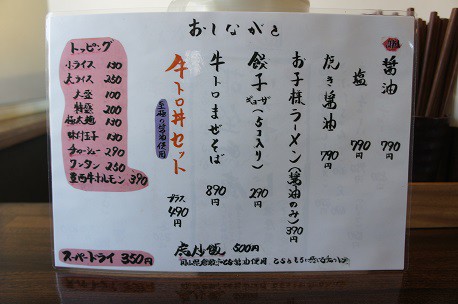 おしながき
醤油 790
塩 790
たき醤油 790
お子様ラーメン(醤油のみ) 390
餃子 ギョーザ (5コ入り) 290
牛トロまぜそば 890
牛トロ丼セット プラス 490円
トッピング
小ライス 150
大ライス 250
大盛 100
特盛 200
極太麺
味付玉子
チャーシュー 290
ワンタン 250
豊西牛ホルモン 390
スーパードライ 350円
炒飯 500円